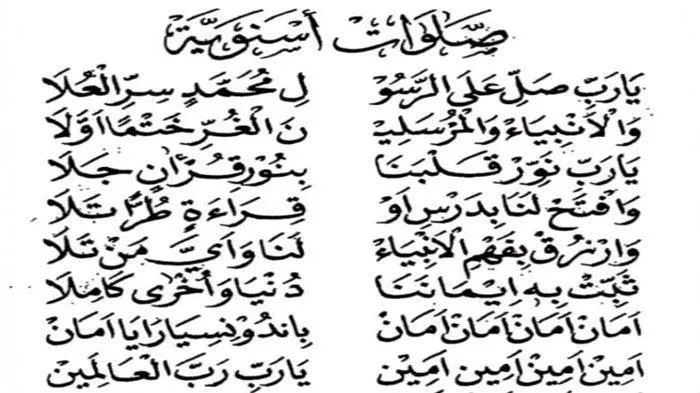 صَلَوَاتْ أَسْنَوِيَّة
يَارَبِّ صَلِّ عَلَى الرَّسُوْ لِ مُحَمَّدٍ سِرِّ الْعُلَا
وَالْأَنْبِيَاءْ وَالْمُرْسَلِيْ نَ الْغُرِّ خَتْمًا أَوَّلَا
يَارَبِّ نَوِّرْ قَلْبَنَا بِنُوْرِ قُرْآنٍ جَلَا
وَافْتَحْ لَنَا بِدَرْسٍ اَوْ قِرَاءَةٍ طُرًّا تَلَا
وَارْزُقْ بِفَهْمِ الْأَنْبِيَاءْ لَنَا وَأَيَّ مَنْ تَلَا
ثَبِّتْ بِهِ إِيْمَانَنَا دُنْيَا وَأُخْرَى كَامِلَا
اَمَانْ اَمَانْ اَمَانْ اَمَانْ بِانْدُوْنِسِيَا رَايَا اَمَانْ
اٰمِيْنْ اٰمِيْنْ اٰمِيْنْ اٰمِيْنْ يَارَبِّ رَبَّ الْعَالَمِيْنْ